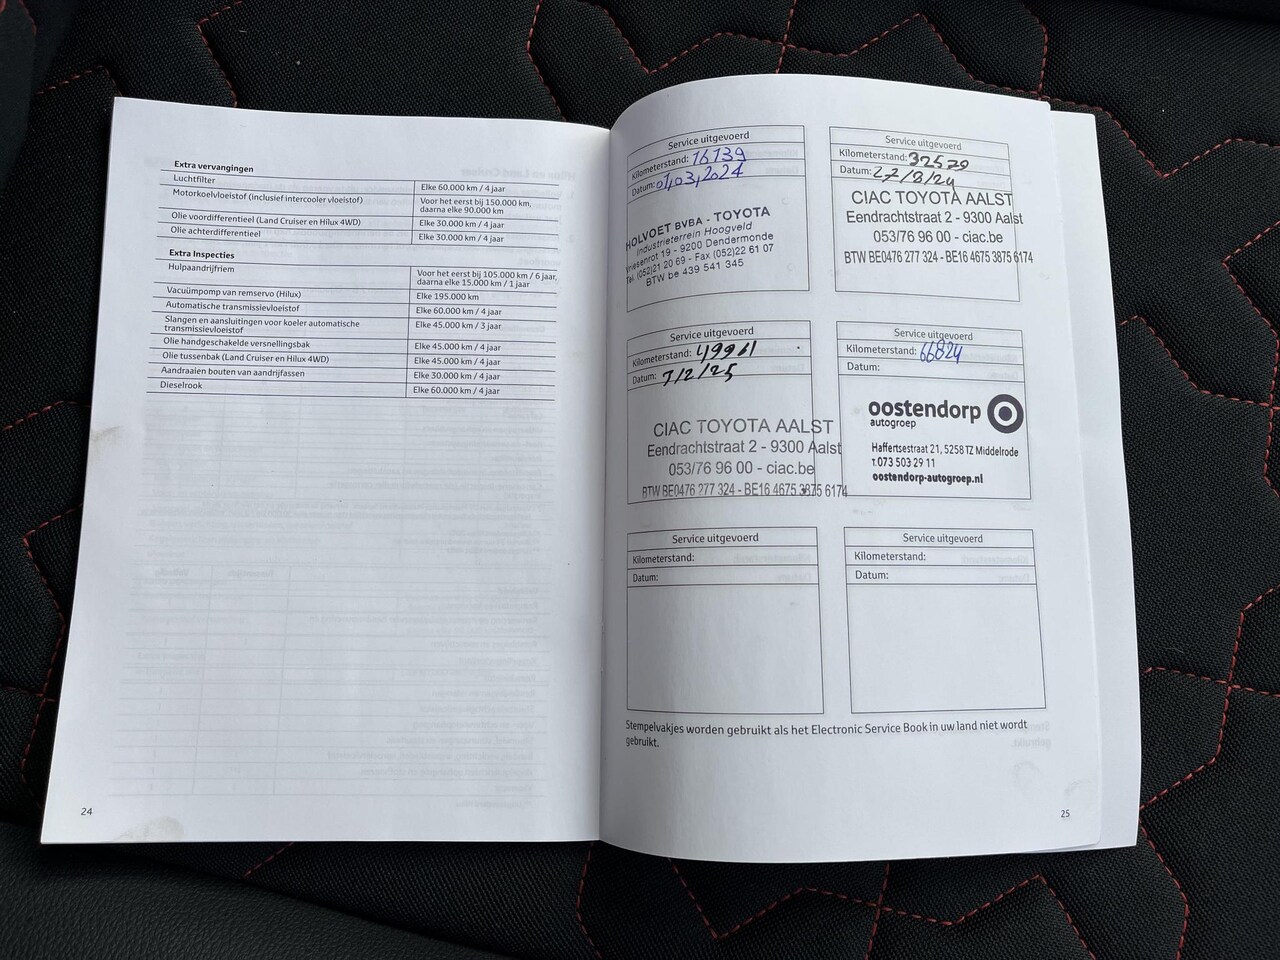 Extra vervangingen
Luchtfilter Elke 60.000 km / 4 jaar
Motorkoelvloeistof (inclusief intercooler vloeistof) Voor het eerst bij 150.000 km,
daarna elke 90.000 km
Olie voordifferentieel (Land Cruiser en Hilux 4WD) Elke 30.000 km / 4 jaar
Olie achterdifferentieel Elke 30.000 km / 4 jaar
Extra Inspecties
Hulpaandrijfriem Voor het eerst bij 105.000 km / 6 jaar,
daarna elke 15.000 km / 1 jaar
Vacuümpomp van remservo (Hilux) Elke 195.000 km
Automatische transmissievloeistof Elke 60.000 km / 4 jaar
Slangen en aansluitingen voor koeler automatische
transmissievloeistof Elke 45.000 km / 3 jaar
Olie handgeschakelde versnellingsbak Elke 45.000 km / 4 jaar
Olie tussenbak (Land Cruiser en Hilux 4WD) Elke 45.000 km / 4 jaar
Aandraaien bouten van aandrijfassen Elke 30.000 km / 4 jaar
Dieselrook Elke 60.000 km / 4 jaar
24
Service uitgevoerd
Kilometerstand: 16139
Datum: 01,03,2024
HOLVOET BVBA - TOYOTA
Industrieterrein Hoogveld
Vriesenrot 19 - 9200 Dendermonde
Tel. (052)21 20 69 - Fax (052)22 61 07
BTW be 439 541 345
Service uitgevoerd
Kilometerstand: 32579
Datum: 27/8/24
CIAC TOYOTA AALST
Eendrachtstraat 2 - 9300 Aalst
053/76 96 00 - ciac.be
BTW BE0476 277 324 - BE16 4675 3875 6174
Service uitgevoerd
Kilometerstand: 49961
Datum: 7/2/25
CIAC TOYOTA AALST
Eendrachtstraat 2 - 9300 Aalst
053/76 96 00 - ciac.be
BTW BE0476 277 324 - BE16 4675 3875 6174
Service uitgevoerd
Kilometerstand: 66824
Datum:
oostendorp
autogroep
Haffertsestraat 21, 5258 TZ Middelrode
T. 073 503 29 11
oostendorp-autogroep.nl
Service uitgevoerd
Kilometerstand:
Datum:
Service uitgevoerd
Kilometerstand:
Datum:
Stempelvakjes worden gebruikt als het Electronic Service Book in uw land niet wordt
gebruikt.
25